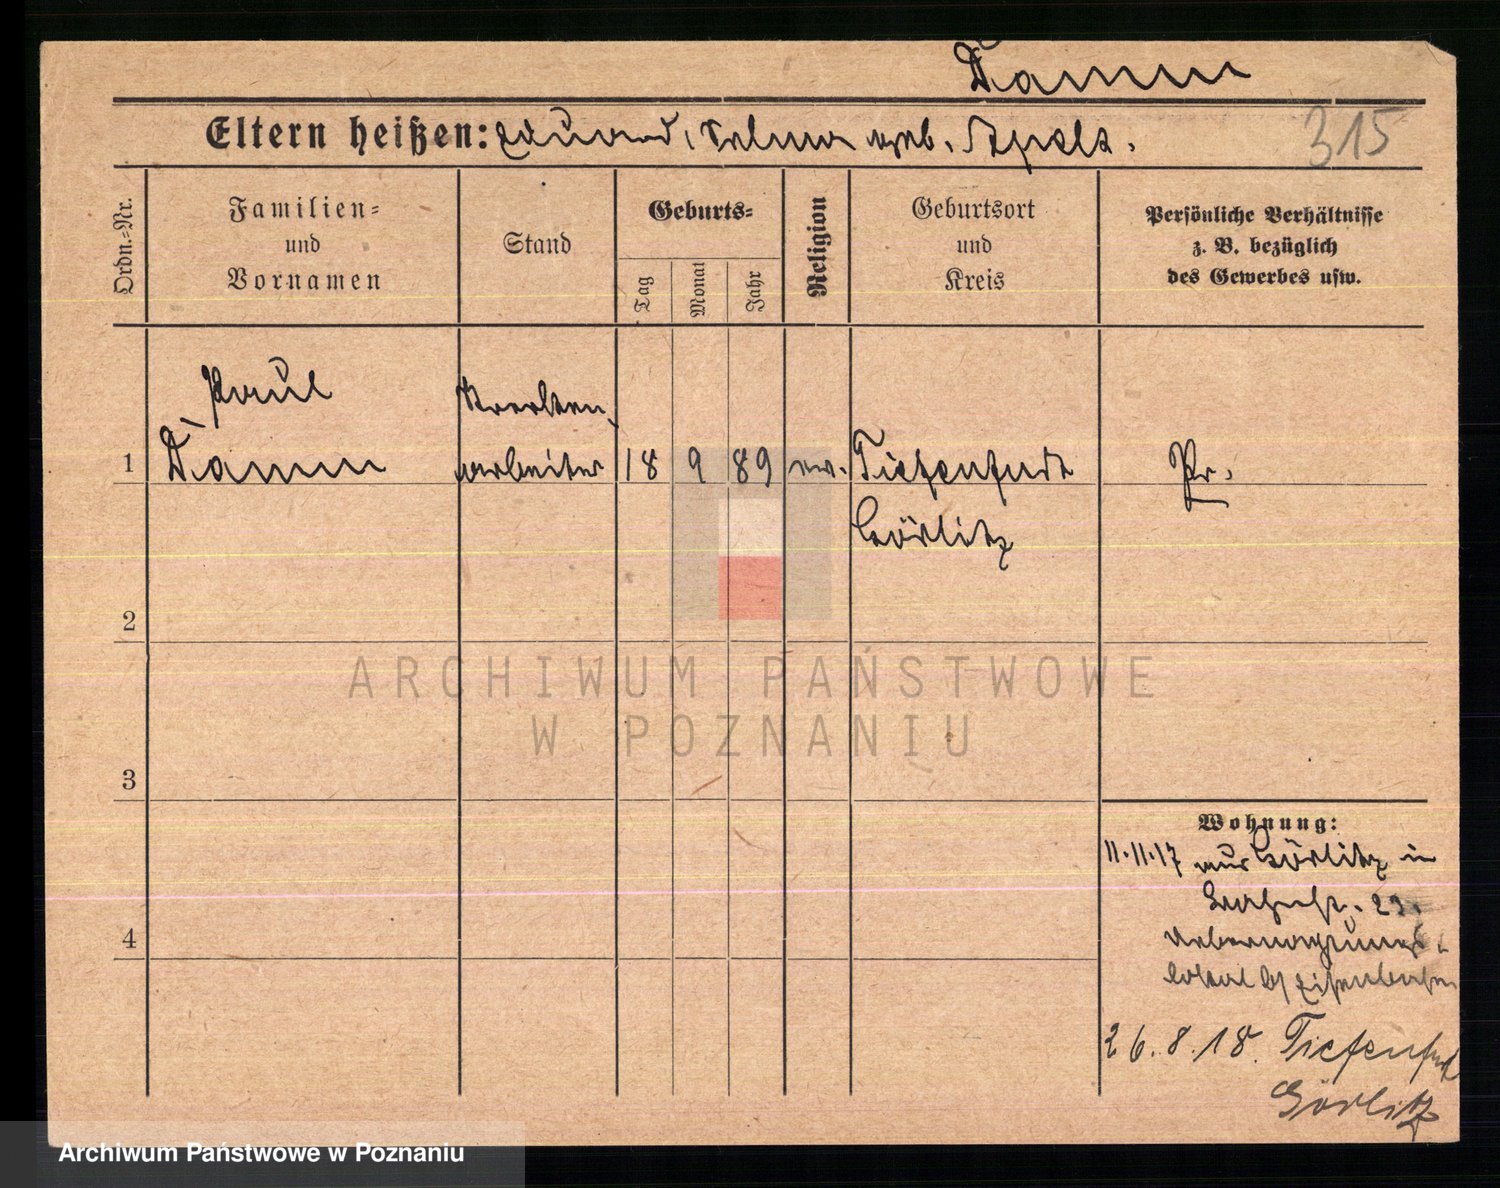 Damm
Eltern heißen: Eduard, Selma geb. Apelt.
315
Ordn.-Nr.
Familien-
und
Vornamen
Stand
Geburts-
Tag
Monat
Jahr
Religion
Geburtsort
und
Kreis
Persönliche Verhältnisse
z. B. bezüglich
des Gewerbes usw.
Paul
1 Damm
arbeiter
18 9 89 ev. Tiefenfurt
Pr.
Görlitz
2
3
4
Wohnung:
11.11.17 aus Görlitz in
23.
26.8.18. Tiefenfurt
Görlitz
ARCHIWUM PAŃSTWOWE
W POZNANIU
Archiwum Państwowe w Poznaniu